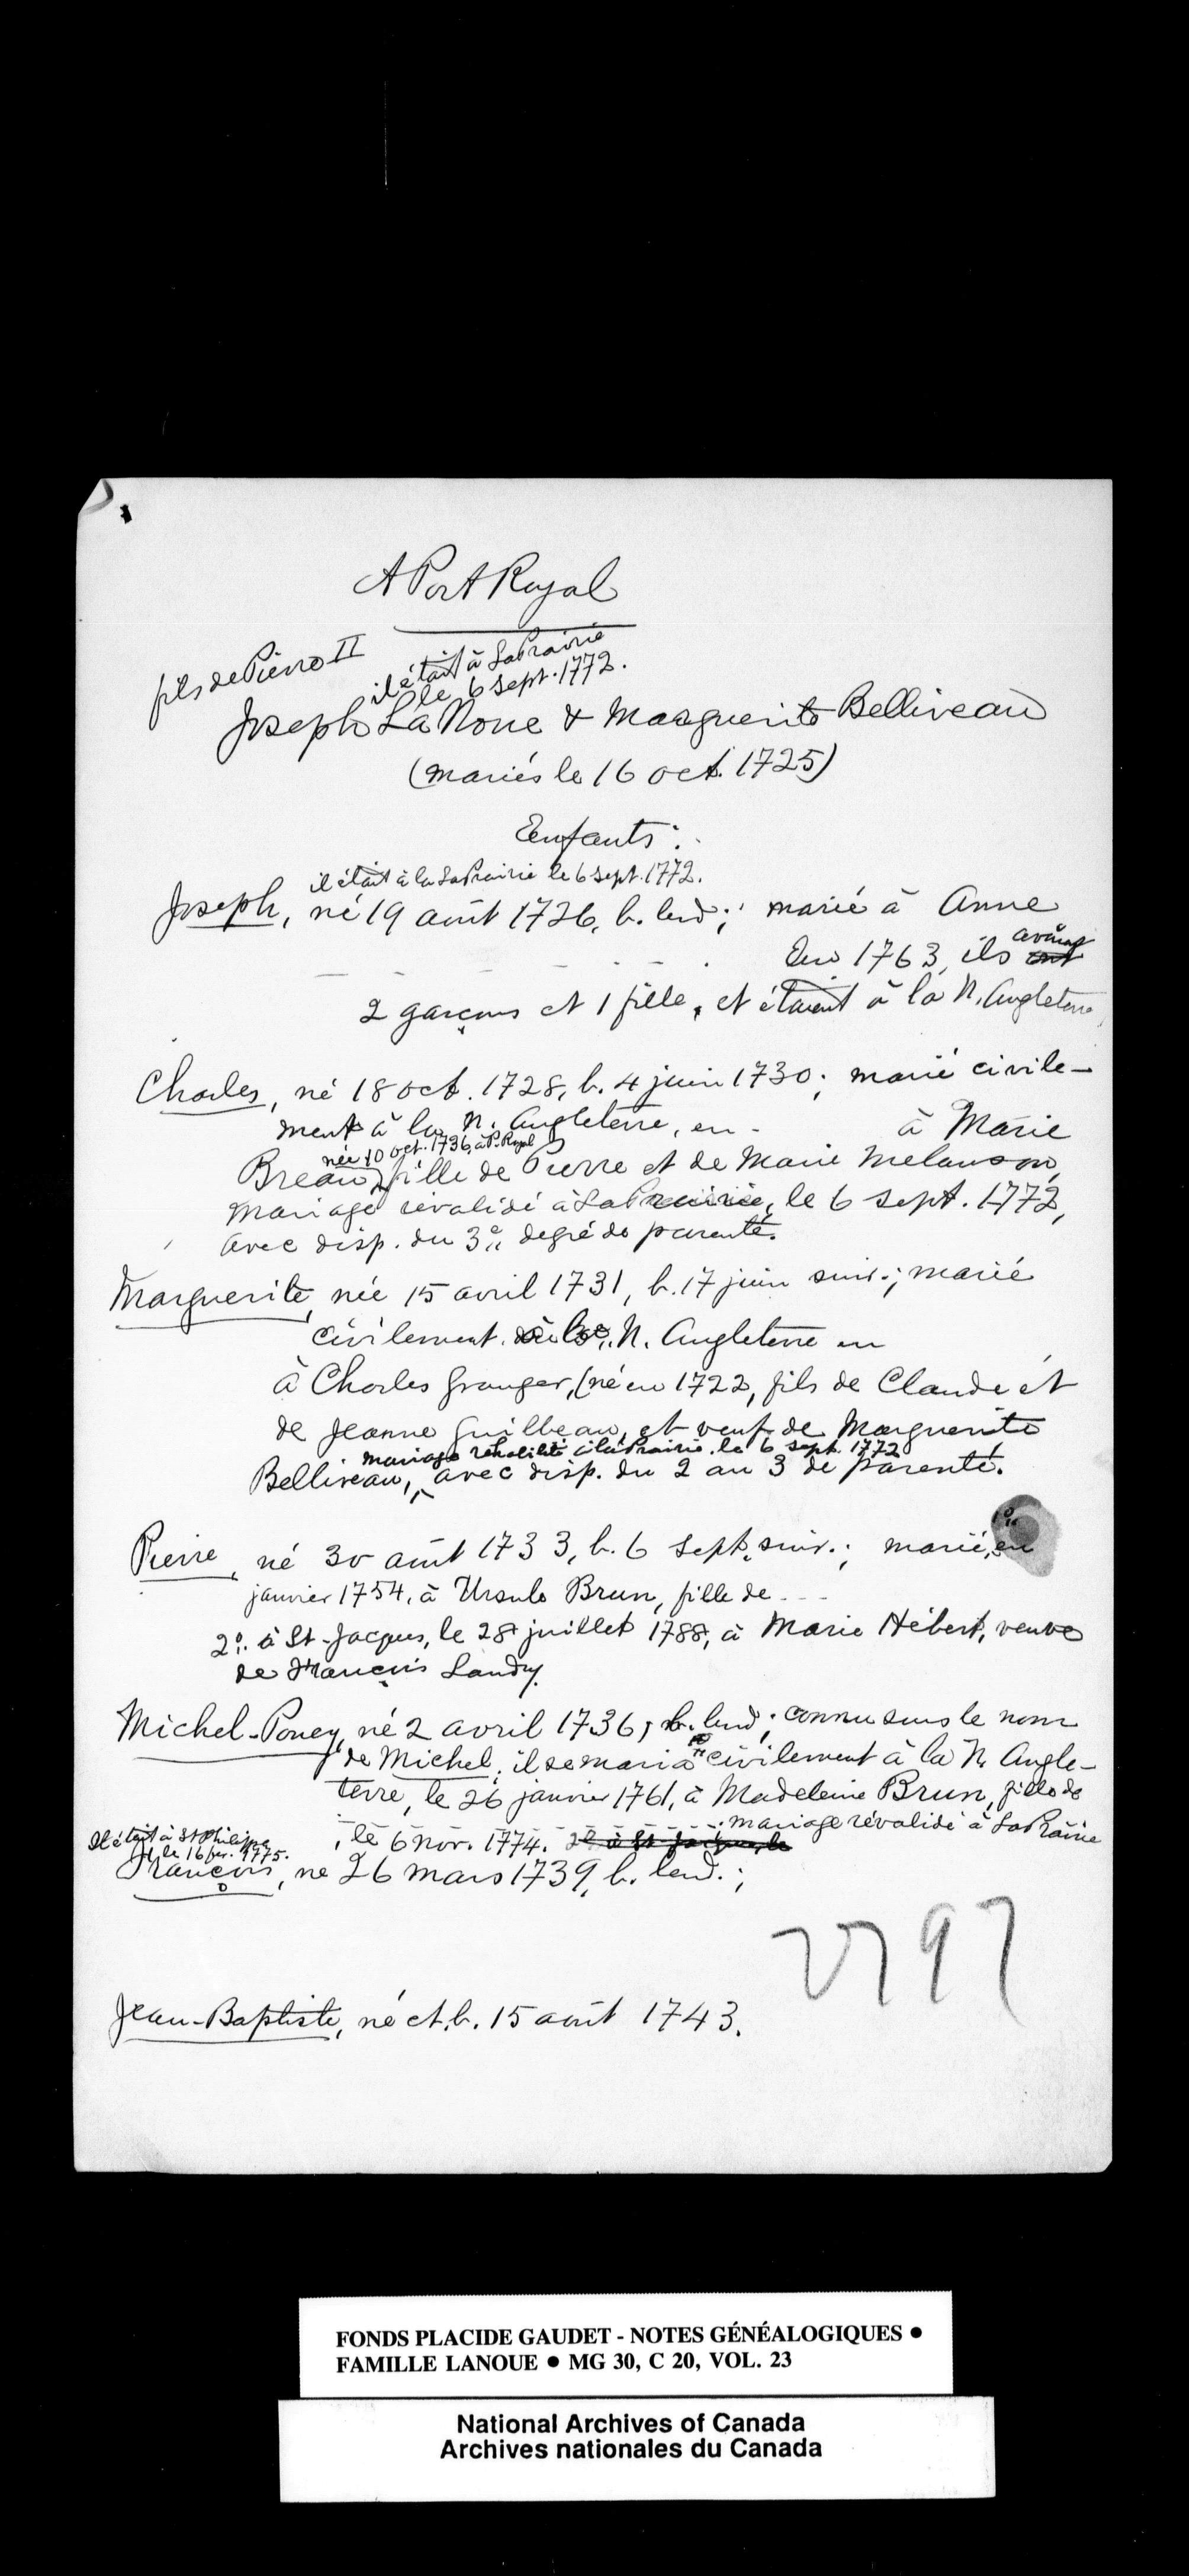 A Port Royal
fils de Pierre II
il était à LaPrairie
le 6 sept. 1772.
Joseph LaNoue & Marguerite Belliveau
(mariés le 16 oct. 1725)
Enfants :
il était à la LaPrairie le 6 sept. 1772.
Joseph, né 19 août 1726, b. lend; marié à Anne
En 1763, ils ont avaient
2 garçons et 1 fille, et étaient à la N. Angleterre,
Charles, né 18 oct. 1728, b. 4 juin 1730; marié civile-
ment à la N. Angleterre, en - à Marie
née 10 oct. 1736, à P. Royal
Breau, fille de Pierre et de Marie Melanson,
Mariage révalidé à LaPrairie, le 6 sept. 1772,
avec disp. du 3e degré de parenté.
Marguerite, née 15 avril 1731, b. 17 juin suiv.; mariée
civilement à la N. Angleterre en
à Charles Granger, (né en 1722, fils de Claude et
de Jeanne Guilbeau, et veuf de Marguerite
mariage réhabilité à LaPrairie, le 6 sept. 1772
Belliveau, avec disp. du 2 au 3 de parenté.
Pierre, né 30 août 1733, b. 6 sept. suiv.; marié, 1o en
janvier 1754, à Ursule Brun, fille de - - -
2o à St-Jacques, le 28 juillet 1788, à Marie Hébert, veuve
de François Landry.
Michel-Poney, né 2 avril 1736, b. lend; connu sous le nom
de Michel, il se maria civilement à la N. Angle-
terre, le 26 janvier 1761, à Madeleine Brun, fille de
; mariage révalidé à LaPrairie
, le 6 nov. 1774. 2o à St Jacques, le
Il était à St Philippe
le 16 fev. 1775.
François, né 26 mars 1739, b. lend.;
2797
Jean-Baptiste, né et b. 15 août 1743.
FONDS PLACIDE GAUDET - NOTES GÉNÉALOGIQUES ●
FAMILLE LANOUE ● MG 30, C 20, VOL. 23
National Archives of Canada
Archives nationales du Canada